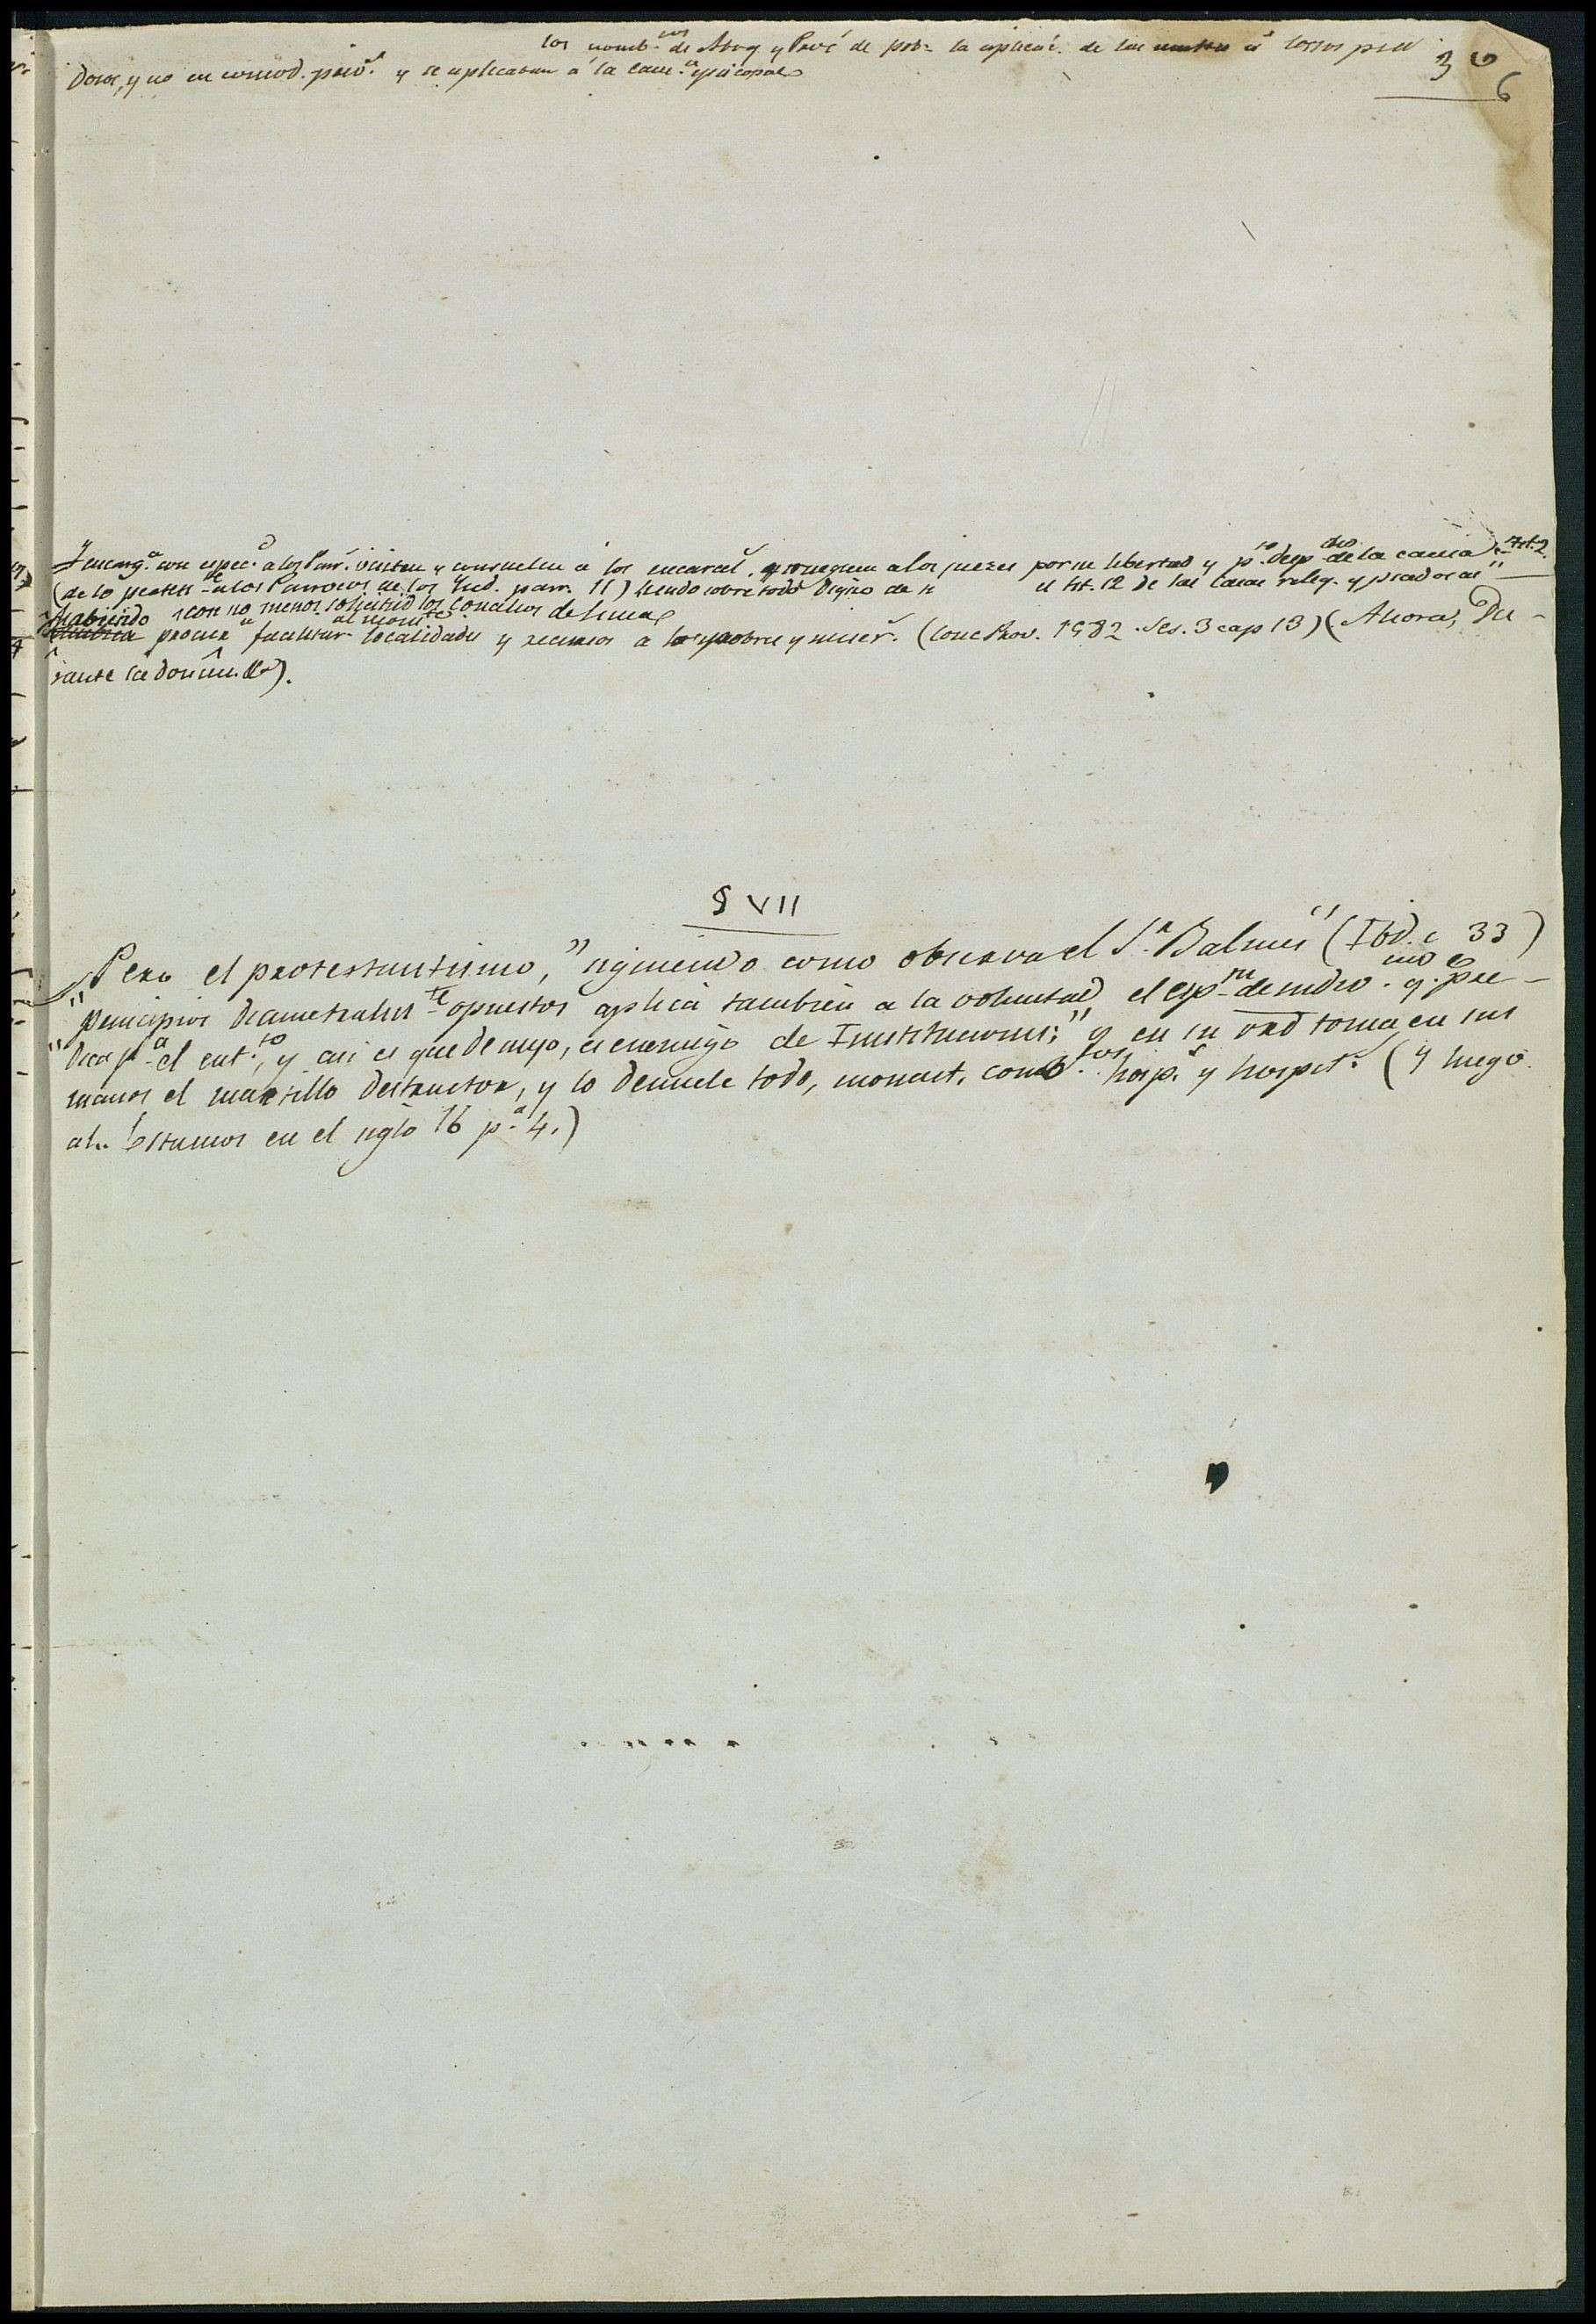 los nomb.tos de Abog y Proc. de pob. la aplicac. de las multas á
dosos, y no en comod. priv.s y se aplicaran á la cam.a episcopal
36
6
Y encarg.a con espec.d a los Parr. visiten y consuelen a los encarcel. y rueguen a los jueces por su libertad y p.to desp.cho de la causa Art. 2
(de lo pertten.te a los Parrocos de los Yud. parr. 11) siendo sobre todo digno de n el tit. 12 de las casas relig. y piadosas"
habiendo con no menos solicitud los Concilios de Lima
procur.a facilitar al monite localidades y recursos a los pobres y miser. (Conc Prov. 1582. Ses. 3 cap 13) (Ahora, Du-
rante la domin. &).
§ VII
"Pero el protestantismo," siguiendo como observa el S.r Balmes" (Ibd. c 33)
"principios diametralm.te opuestos aplica tambien a la voluntad el esp.tu de indiv.mo q. pre-
"dica p.a el ent.to, y asi es que de suyo, es enemigo de Instituciones:" q en su od toma en sus
manos el martillo destructor, y lo demuele todo, monast. conv.tos hosp.s y hospit. (y luego
al.. Estamos en el siglo 16 p.a 4.)